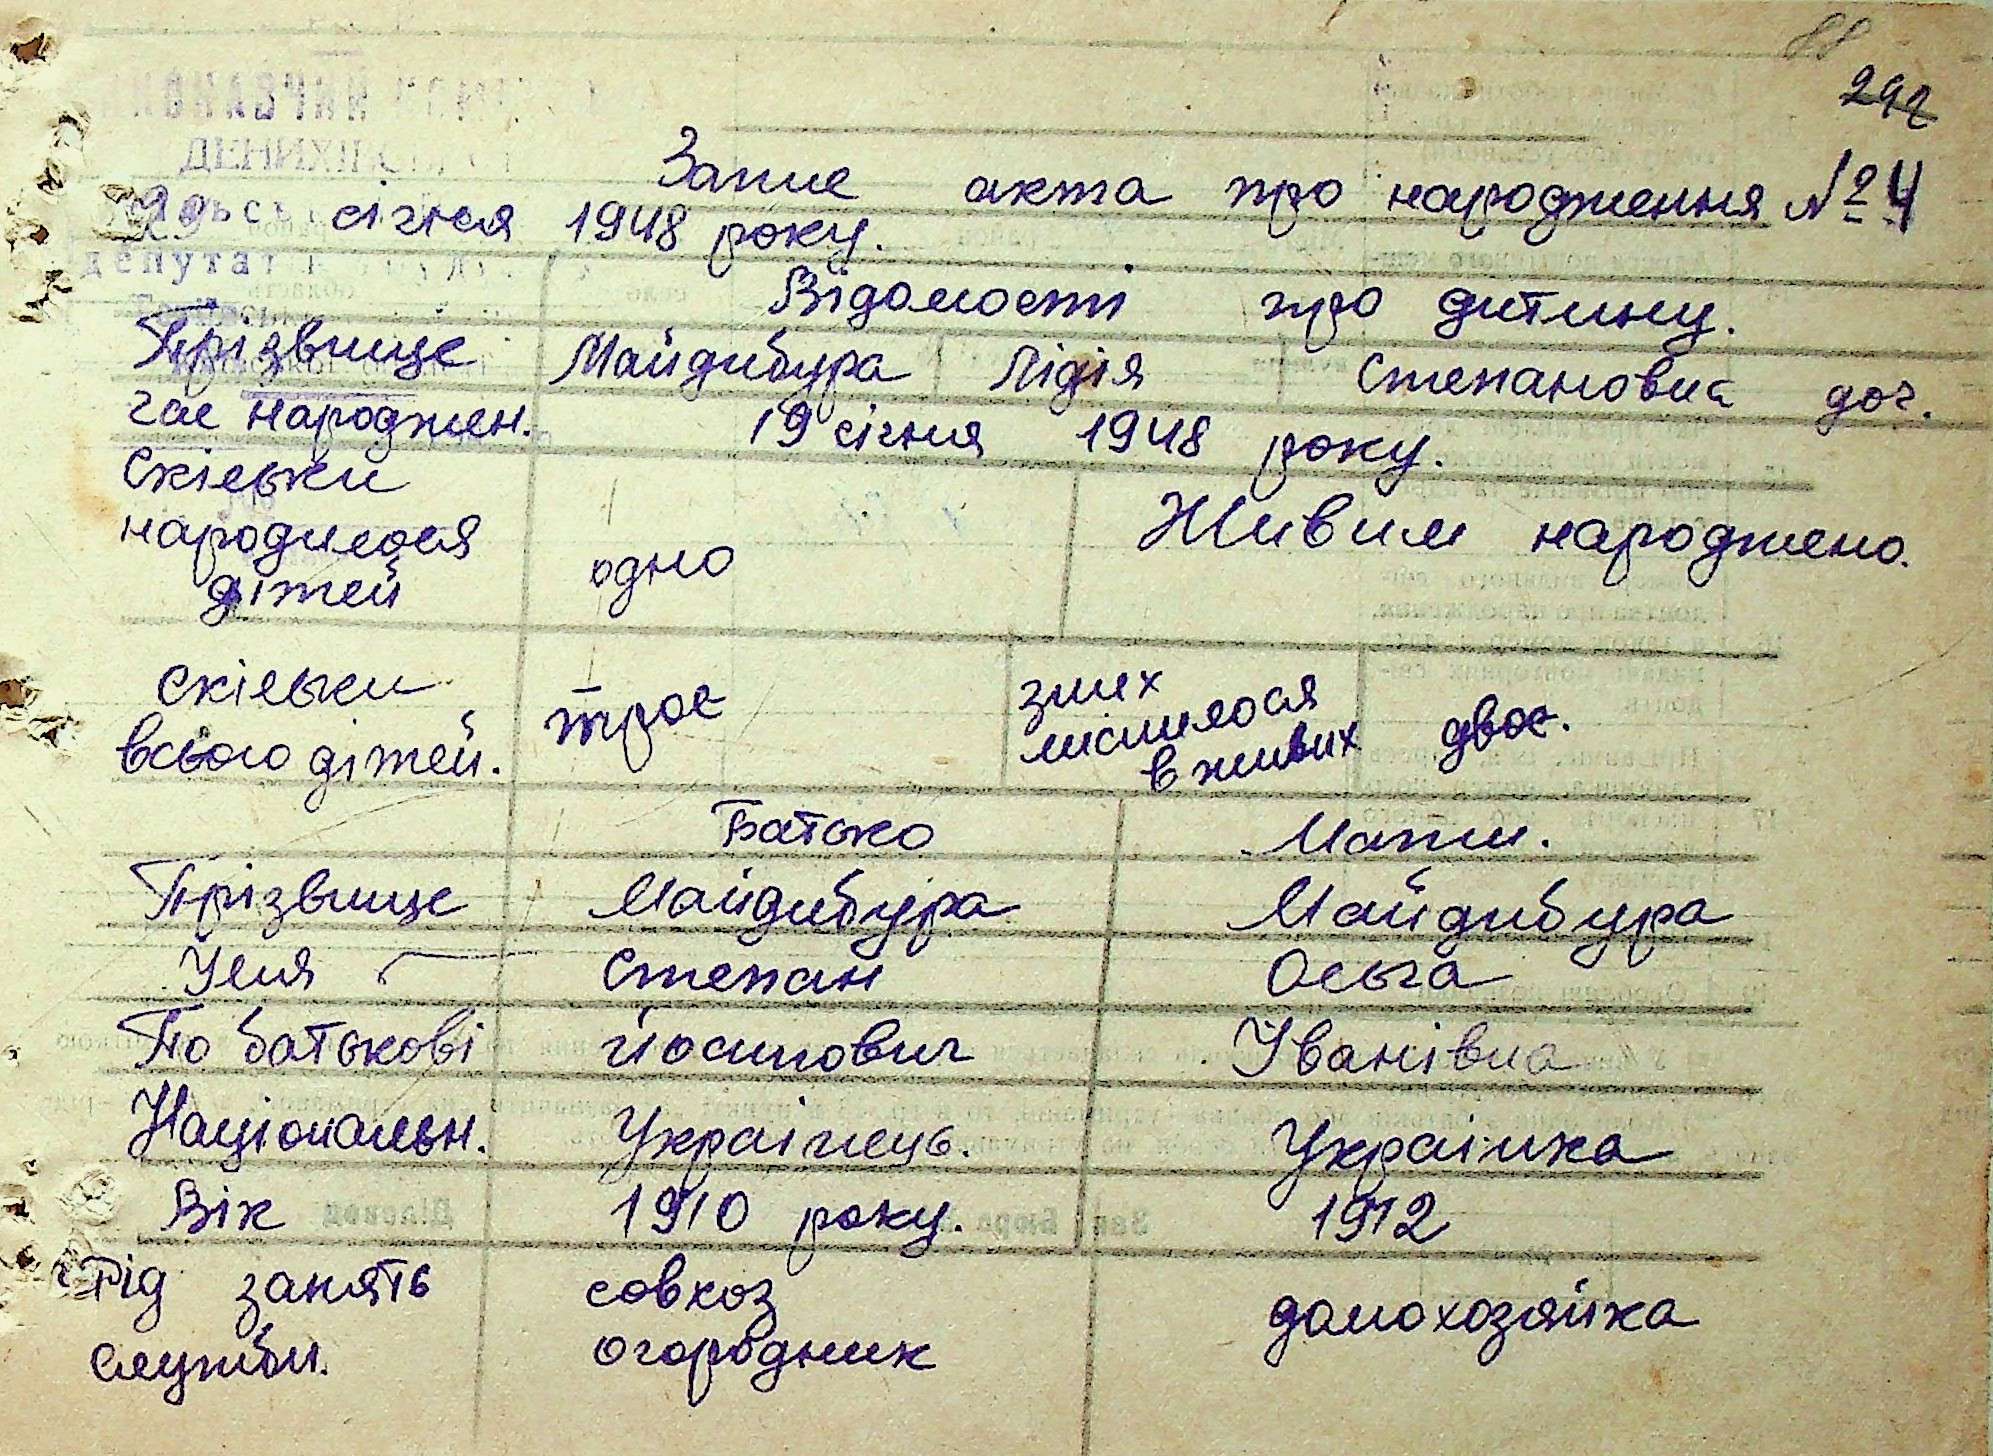 88
292
Запис акта про народження № 4
29 січня 1948 року.
Відомості про дитину.
Прізвище Майдибура Лідія Степановна доч.
час народжен. 19 січня 1948 року.
Скільки народилося дітей одно Живим народжено.
скільки всього дітей. троє з них лісшилося в живих двоє.
Батько Мати.
Прізвище Майдибура Майдибура
Имя Степан Ольга
По батькові Йосипович Іванівна
Національн. Українець. Українка
Вік 1910 року. 1912
Рід занять служби. совхоз огородник домохозяйка